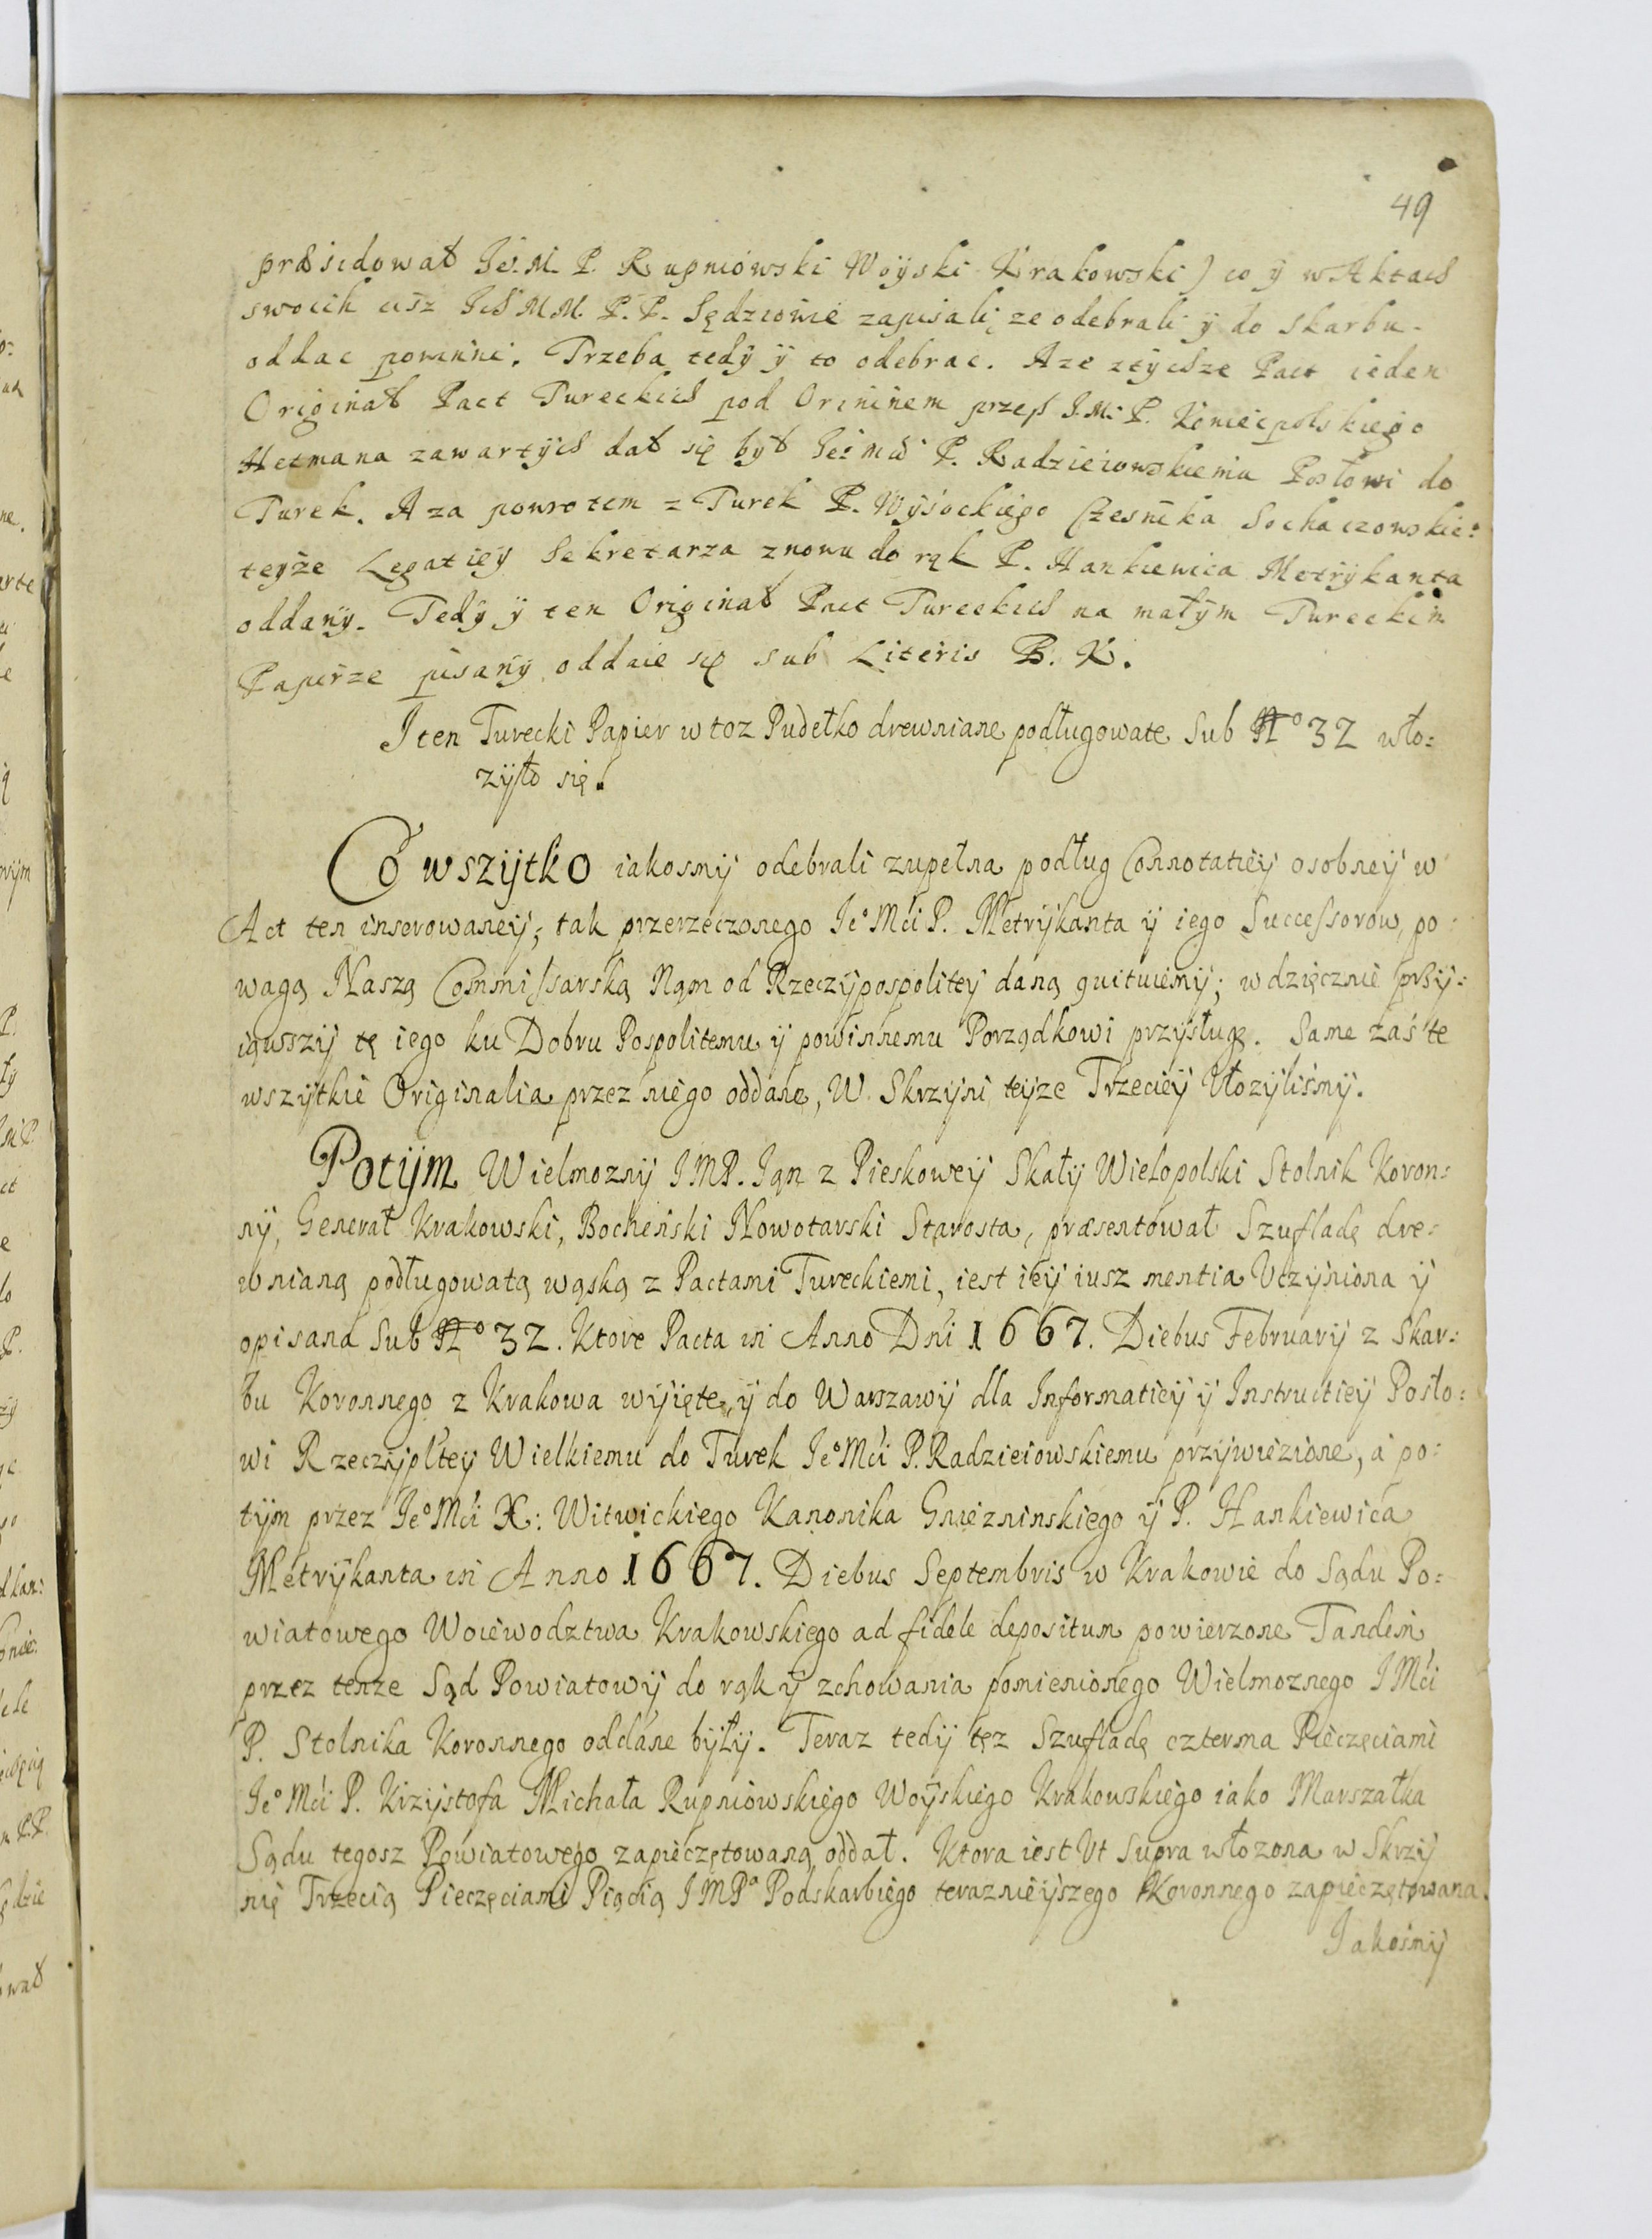 49
præsidował Ie°. M. P. Rupniowski Woyski Krakowski) co y w Aktach
swoich iusz IchMM. P.P. Sędziowie zapisali, ze odebrali y do Skarbu
oddac powinni. Trzeba tedy y to odebrac. A ze ztychze Pact ieden
Originał Pact Tureckich pod Orininem przez I.M. P. Koniecpolskiego
Hetmana zawartych dał się był Ie° Mci P. Radzieiowskiemu Posłowi do
Turek. A za powrotem z Turek P. Wysockiego Czesnika Sochaczowskie:
teyże Legatiey Sekretarza znowu do rąk P. Hankiewica Metrykanta
oddany. Tedy y ten Originał Pact Tureckich na małym Tureckim
Papirze pisany, oddaie się sub Literis B. K.
I ten Turecki Papier w toz Pudełko drewniane podługowate Sub N° 32 wło:
zyło się.
Co wszytko iakosmy odebrali zupełna podług Connotatiey osobney w
Act ten inserowaney; tak przerzeczonego Ie° Mći P. Metrykanta y iego Successorow, po:
wagą Naszą Commissarską Nąm od Rzeczypospolitey daną quituiemy; wdzięcznie przy:
iąwszy tę iego ku Dobru Pospolitemu y powinnemu Porządkowi przysługę. Same zaś te
wszytkie Originalia przez niego oddane, W Skrzyni teyze Trzeciey Ułozyliśmy.
Potym Wielmozny IMP. Iąn z Pieskowey Skały Wielopolski Stolnik Koron:
ny, Generał Krakowski, Bocheński Nowotarski Starosta, præsentował Szufladę dre:
wnianą podługowatą wąską z Pactami Tureckiemi, iest iey iusz mentia Uczyniona y
opisana Sub N° 32. Ktore Pacta in Anno Dńi 1667. Diebus Februarij z Skar:
bu Koronnego z Krakowa wyięte, y do Warszawy dla Informatiey y Instructiey Posło:
wi Rzeczypltey Wielkiemu do Turek Ie° Mći P. Radzieiowskiemu przywiezione, a po:
tym przez Ie° Mći X: Witwickiego Kanonika Gniezninskiego y P. Hankiewica
Metrykanta in Anno 1667. Diebus Septembris w Krakowie do Sądu Po:
wiatowego Woiewodztwa Krakowskiego ad fidele depositum powierzone Tandem
przez tenze Sąd Powiatowy do rąk y zchowania pomienionego Wielmoznego IMći
P. Stolnika Koronnego oddane były. Teraz tedy tęz Szufladę czterma Pieczęciami
Ie° Mći P. Krzystofa Michała Rupniowskiego Woyskiego Krakowskiego iako Marszałka
Sądu tegosz Powiatowego zapieczętowaną oddał. Ktora iest Ut Supra włozona w Skrzy
nię Trzecią Pieczęciami Piącią IMPa Podskarbiego teraznieyszego Koronnego zapieczętowana.
Iakośmy